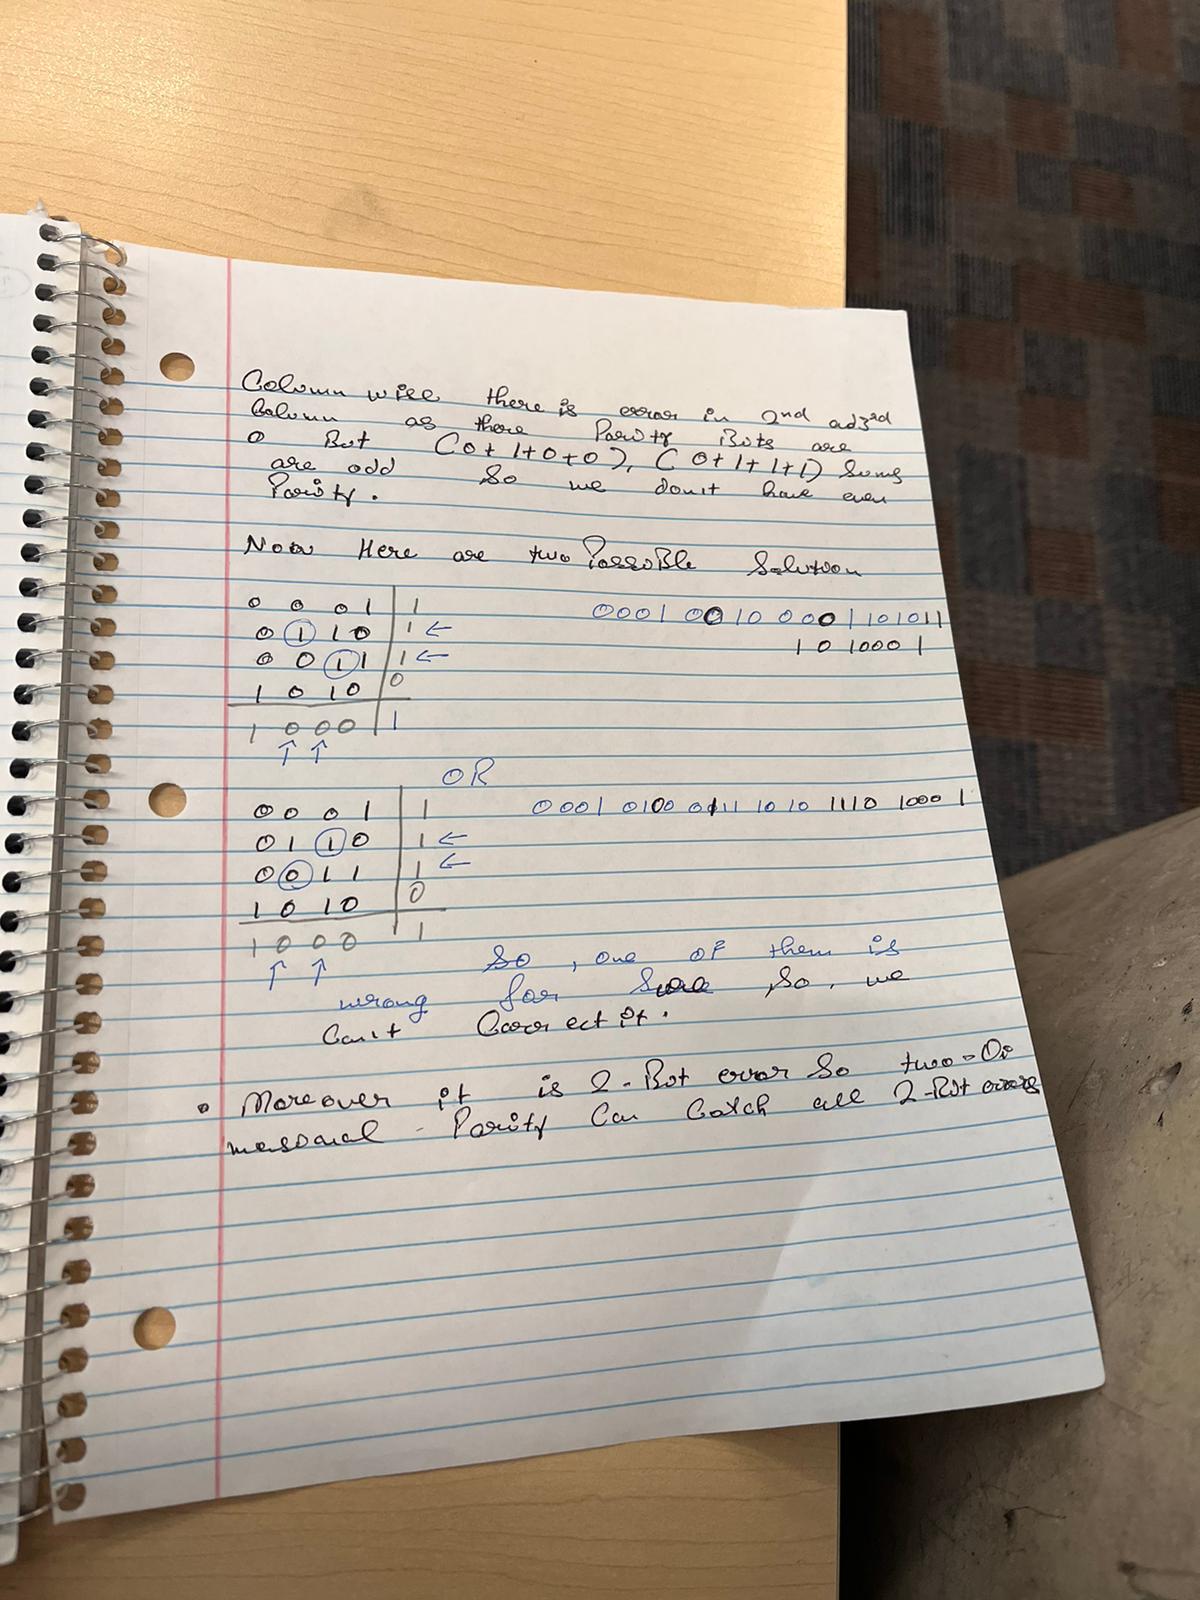 Column wise there is error in 2nd ad 3rd
Column as there Parity Bits are
0 But (0+1+0+0), (0+1+1+1) Sums
are odd So we don't have even
Parity.
Now Here are two Possible Solution
0 0 0 1 | 1 0001 0010 0001 101011
0 1 1 0 | 1 ← 1 0 1000 1
0 0 1 1 | 1 ←
1 0 1 0 | 0
1 0 0 0 | 1
↑ ↑
OR
0 0 0 1 | 1 0001 0100 0111 1010 1110 1000 1
0 1 1 0 | 1 ←
0 0 1 1 | 1 ←
1 0 1 0 | 0
1 0 0 0 | 1
↑ ↑
So, one of them is
wrong for Sure, So, we
Can't Correct it.
• Moreover it is 2-Bit error So two-Di
mensional Parity Can Catch all 2-Bit errors